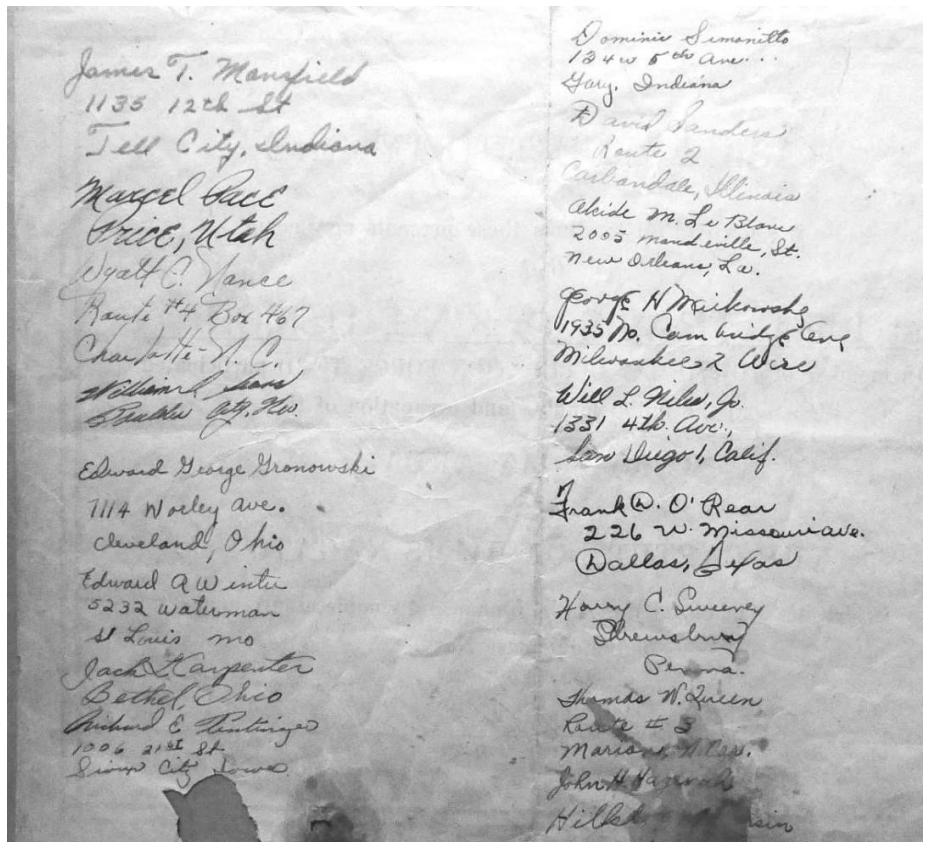 James T. Mansfield
1135 12th St
Tell City, Indiana
Marcel Pace
Price, Utah
Wyatt C. Nance
Route #4 Box 467
Charlotte - N.C.
William Sears
Boulder City, Nev.
Edward George Gronowski
7114 Worley ave.
Cleveland, Ohio
Edward A Winter
5232 Waterman
St Louis mo
Jack Karpenter
Bethel, Ohio
Richard E
1006 21st St
Sioux City Iowa
Dominic Simonitto
134 w 5th Ave...
Gary, Indiana
David Sanders
Route 2
Carbandale, Illinois
Alcide M. Le Blanc
2005 mandeville, St.
New Orleans, La.
George H Mirkowsky
1935 No. Cambridge Ave
Milwaukee 2 Wisc
Will L. Niles, Jr.
1331 4th Ave.,
San Diego 1, Calif.
Frank D. O'Rear
226 W. Missouri ave.
Dallas, Texas
Harry C. Sweeney
Shrewsbury
Penna.
Thomas W. Queen
Route # 3
Marion, N. Car.
John H